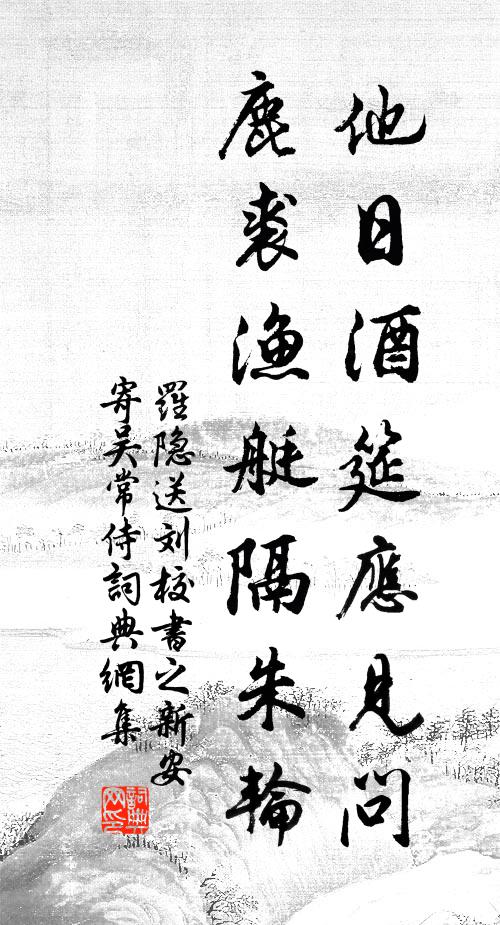 他日酒筵應見問
鹿裘漁艇隔朱輪
羅隐送刘校書之新安
寄吴常侍詞典網集